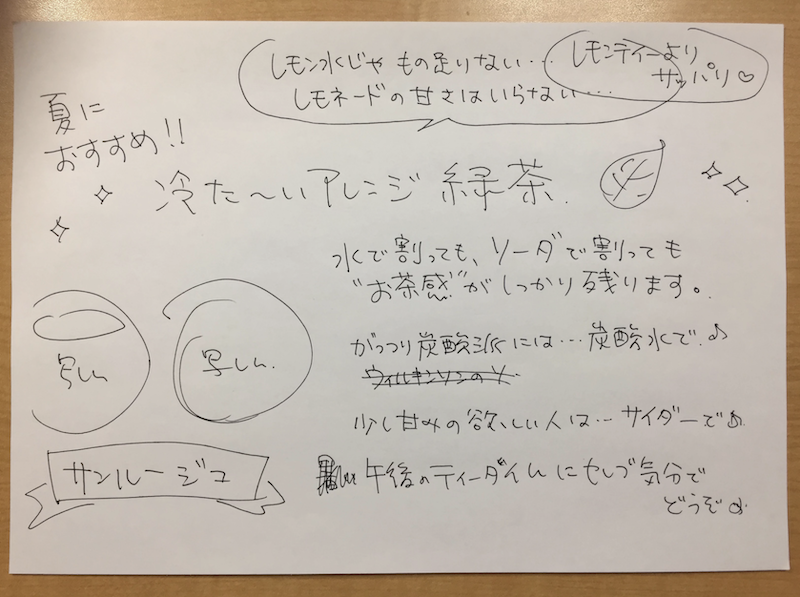 レモン水じゃ もの足りない…
レモネードの甘さはいらない…
レモンティーより
サッパリ♡
夏に
おすすめ!!
冷た〜いアレンジ 緑茶
水で割っても、ソーダで割っても
"お茶感"がしっかり残ります。
がっつり炭酸派には…炭酸水で♪
ウィルキンソンのソ
少し甘みの欲しい人は…サイダーで♪
午後のティータイムにセレブ気分で
どうぞ♪
写しん
写しん
サンルージュ